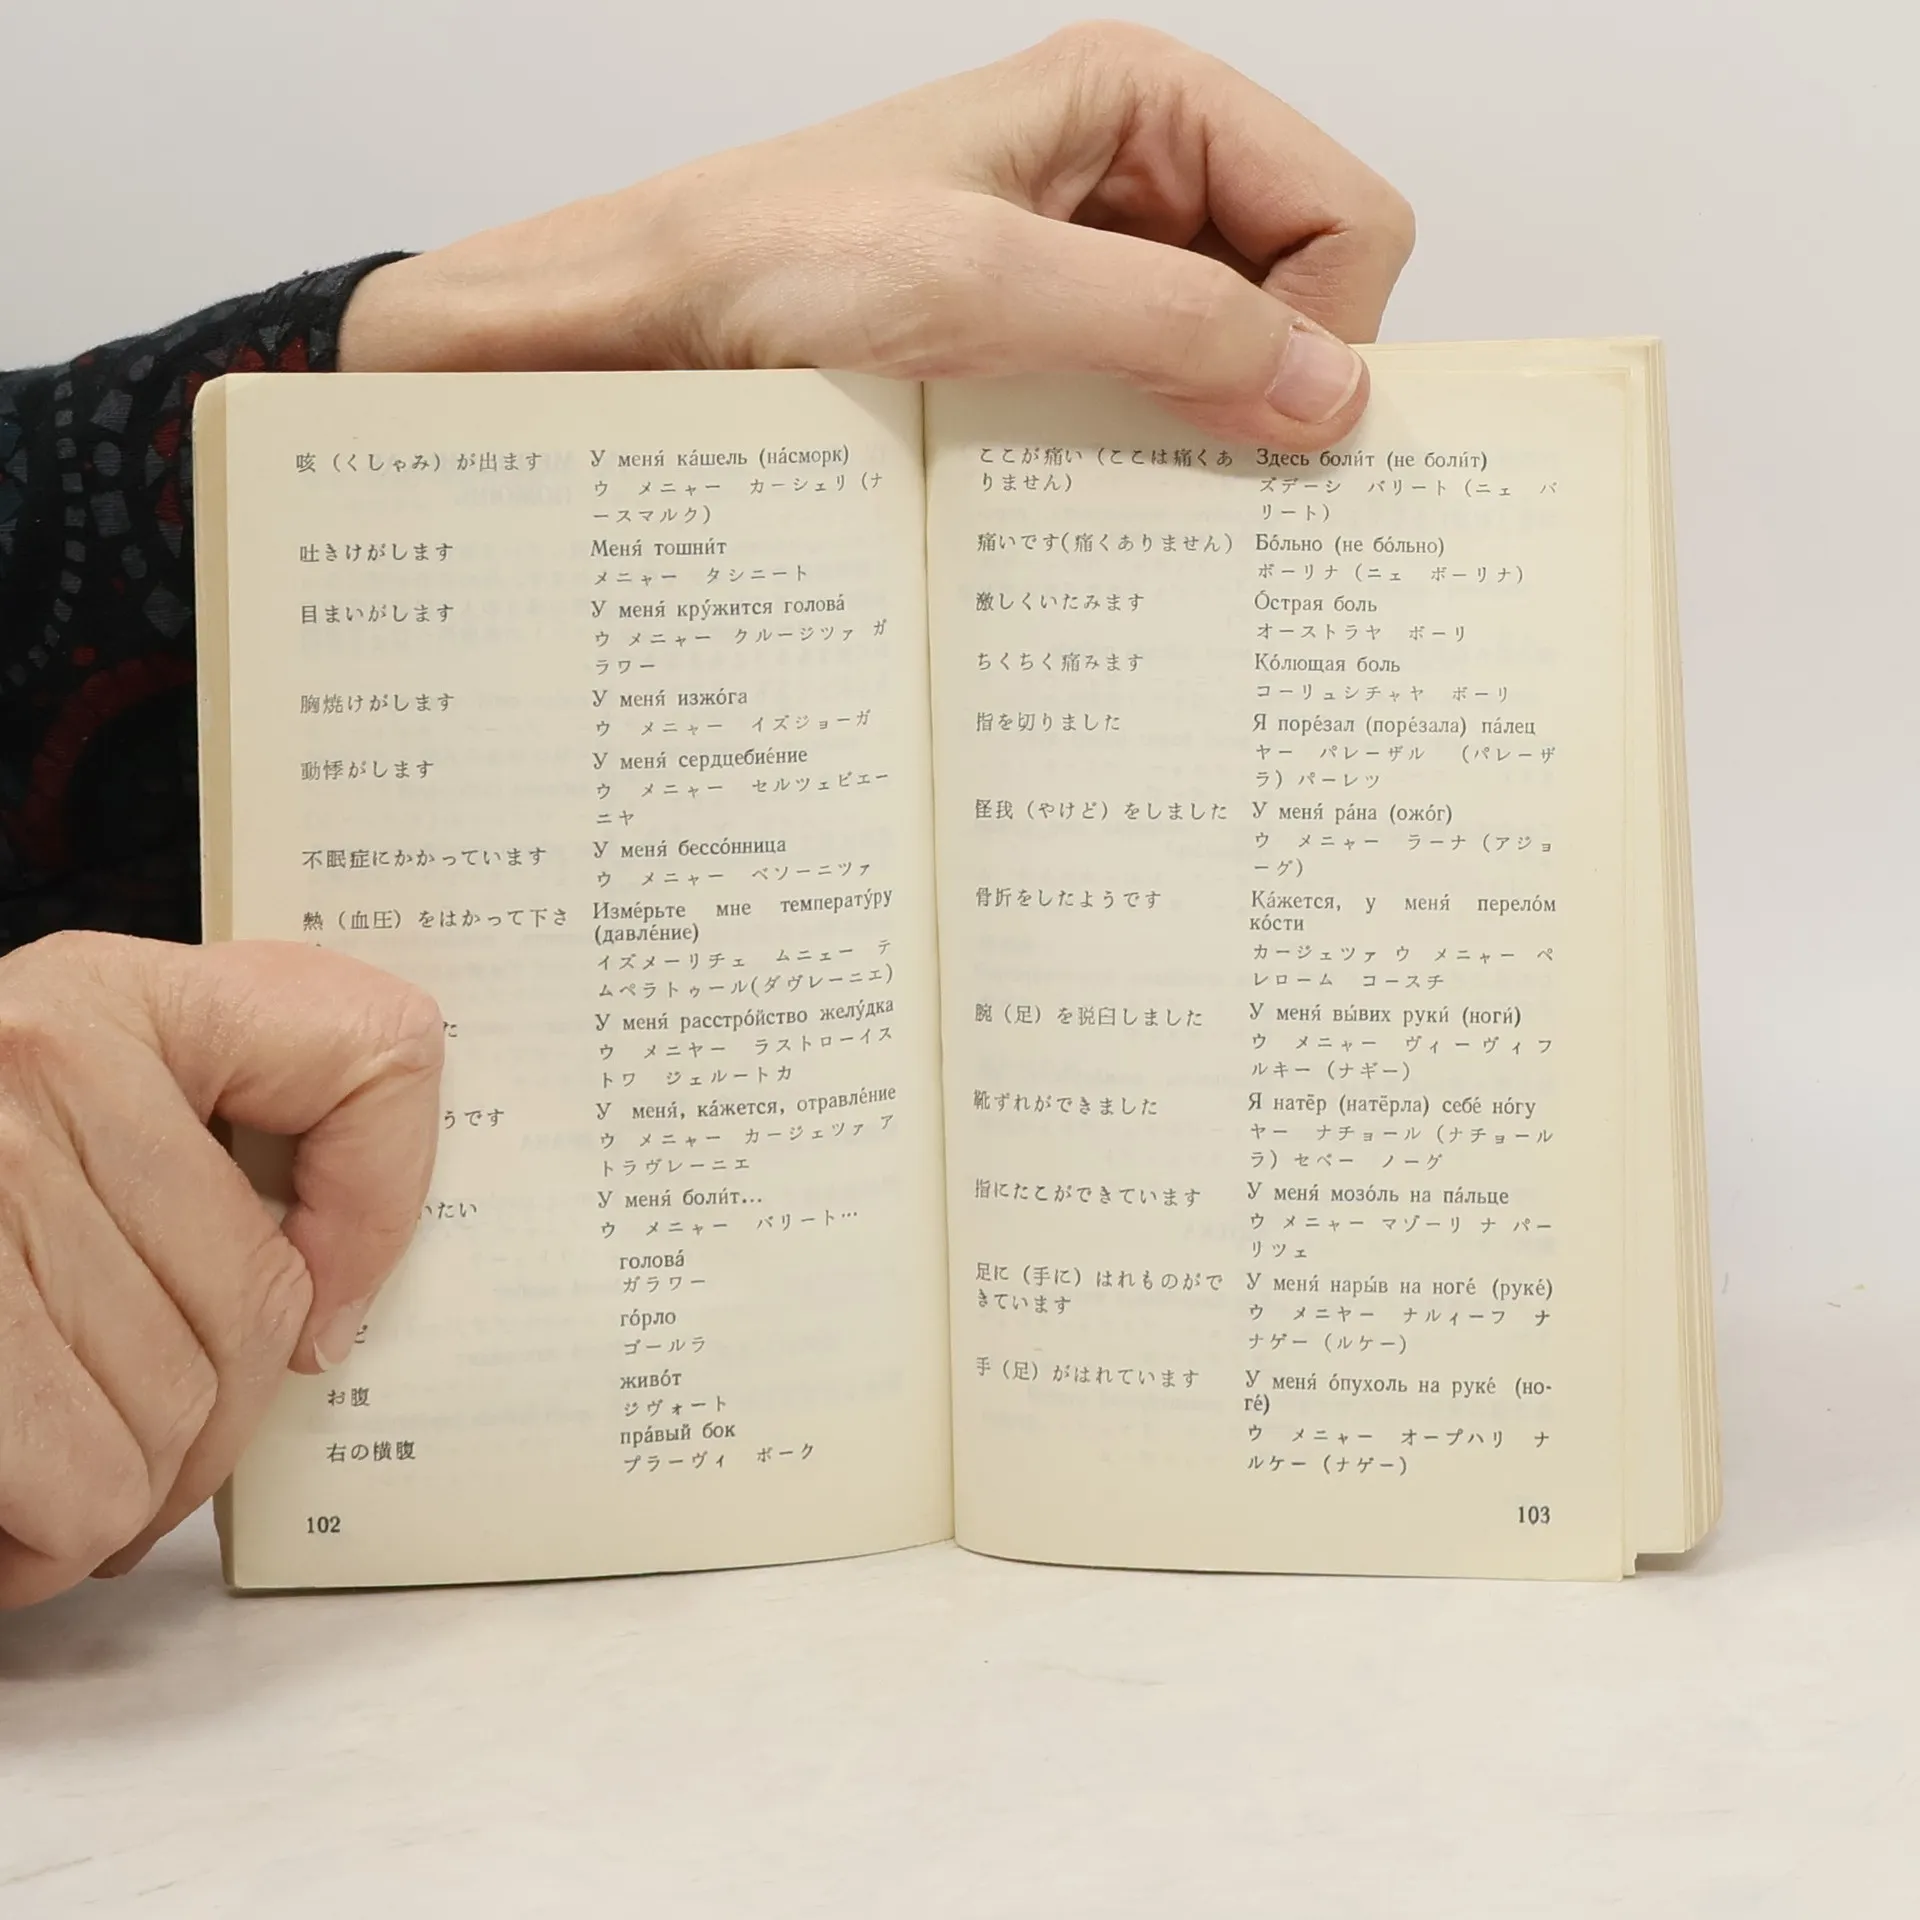 咳（くしゃみ）が出ます
У меня́ ка́шель (на́сморк)
ウ　メニャー　カーシェリ（ナ
ースマルク）
吐きけがします
Меня́ тошни́т
メニャー　タシニート
目まいがします
У меня́ кру́жится голова́
ウ メニャー　クルージツァ ガ
ラワー
胸焼けがします
У меня́ изжо́га
ウ　メニャー　イズジョーガ
動悸がします
У меня́ сердцебие́ние
ウ　メニャー　セルツェビエー
ニヤ
不眠症にかかっています
У меня́ бессо́нница
ウ　メニャー　ベソーニツァ
熱（血圧）をはかって下さ
Изме́рьте мне температу́ру
(давле́ние)
イズメーリチェ　ムニェー　テ
ムペラトゥール(ダヴレーニエ)
た
У меня́ расстро́йство желу́дка
ウ　メニヤー　ラストローイス
トワ　ジェルートカ
うです
У меня́, ка́жется, отравле́ние
ウ　メニャー　カージェツァ ア
トラヴレーニエ
いたい
У меня́ боли́т...
ウ　メニャー　バリート…
голова́
ガラワー
ど
го́рло
ゴールラ
お腹
живо́т
ジヴォート
右の横腹
пра́вый бок
プラーヴィ　ボーク
102
ここが痛い（ここは痛くあ
りません）
Здесь боли́т (не боли́т)
ズデーシ　バリート（ニェ　バ
リート）
痛いです(痛くありません）
Бо́льно (не бо́льно)
ボーリナ（ニェ　ボーリナ）
激しくいたみます
О́страя боль
オーストラヤ　ボーリ
ちくちく痛みます
Ко́лющая боль
コーリュシチャヤ　ボーリ
指を切りました
Я поре́зал (поре́зала) па́лец
ヤー　パレーザル　（パレーザ
ラ）パーレツ
怪我（やけど）をしました
У меня́ ра́на (ожо́г)
ウ　メニャー　ラーナ（アジョ
ーグ）
骨折をしたようです
Ка́жется, у меня́ перело́м
ко́сти
カージェツァ ウ　メニャー　ペ
レローム　コースチ
腕（足）を脱臼しました
У меня́ вы́вих руки́ (ноги́)
ウ　メニャー　ヴィーヴィフ
ルキー（ナギー）
靴ずれができました
Я натёр (натёрла) себе́ но́гу
ヤー　ナチョール（ナチョール
ラ）セベー　ノーグ
指にたこができています
У меня́ мозо́ль на па́льце
ウ メニャー マゾーリ　ナ　パー
リツェ
足に（手に）はれものがで
きています
У меня́ нары́в на ноге́ (руке́)
ウ　メニヤー　ナルィーフ　ナ
ナゲー（ルケー）
手（足）がはれています
У меня́ о́пухоль на руке́ (но-
ге́)
ウ　メニャー　オープハリ　ナ
ルケー（ナゲー）
103